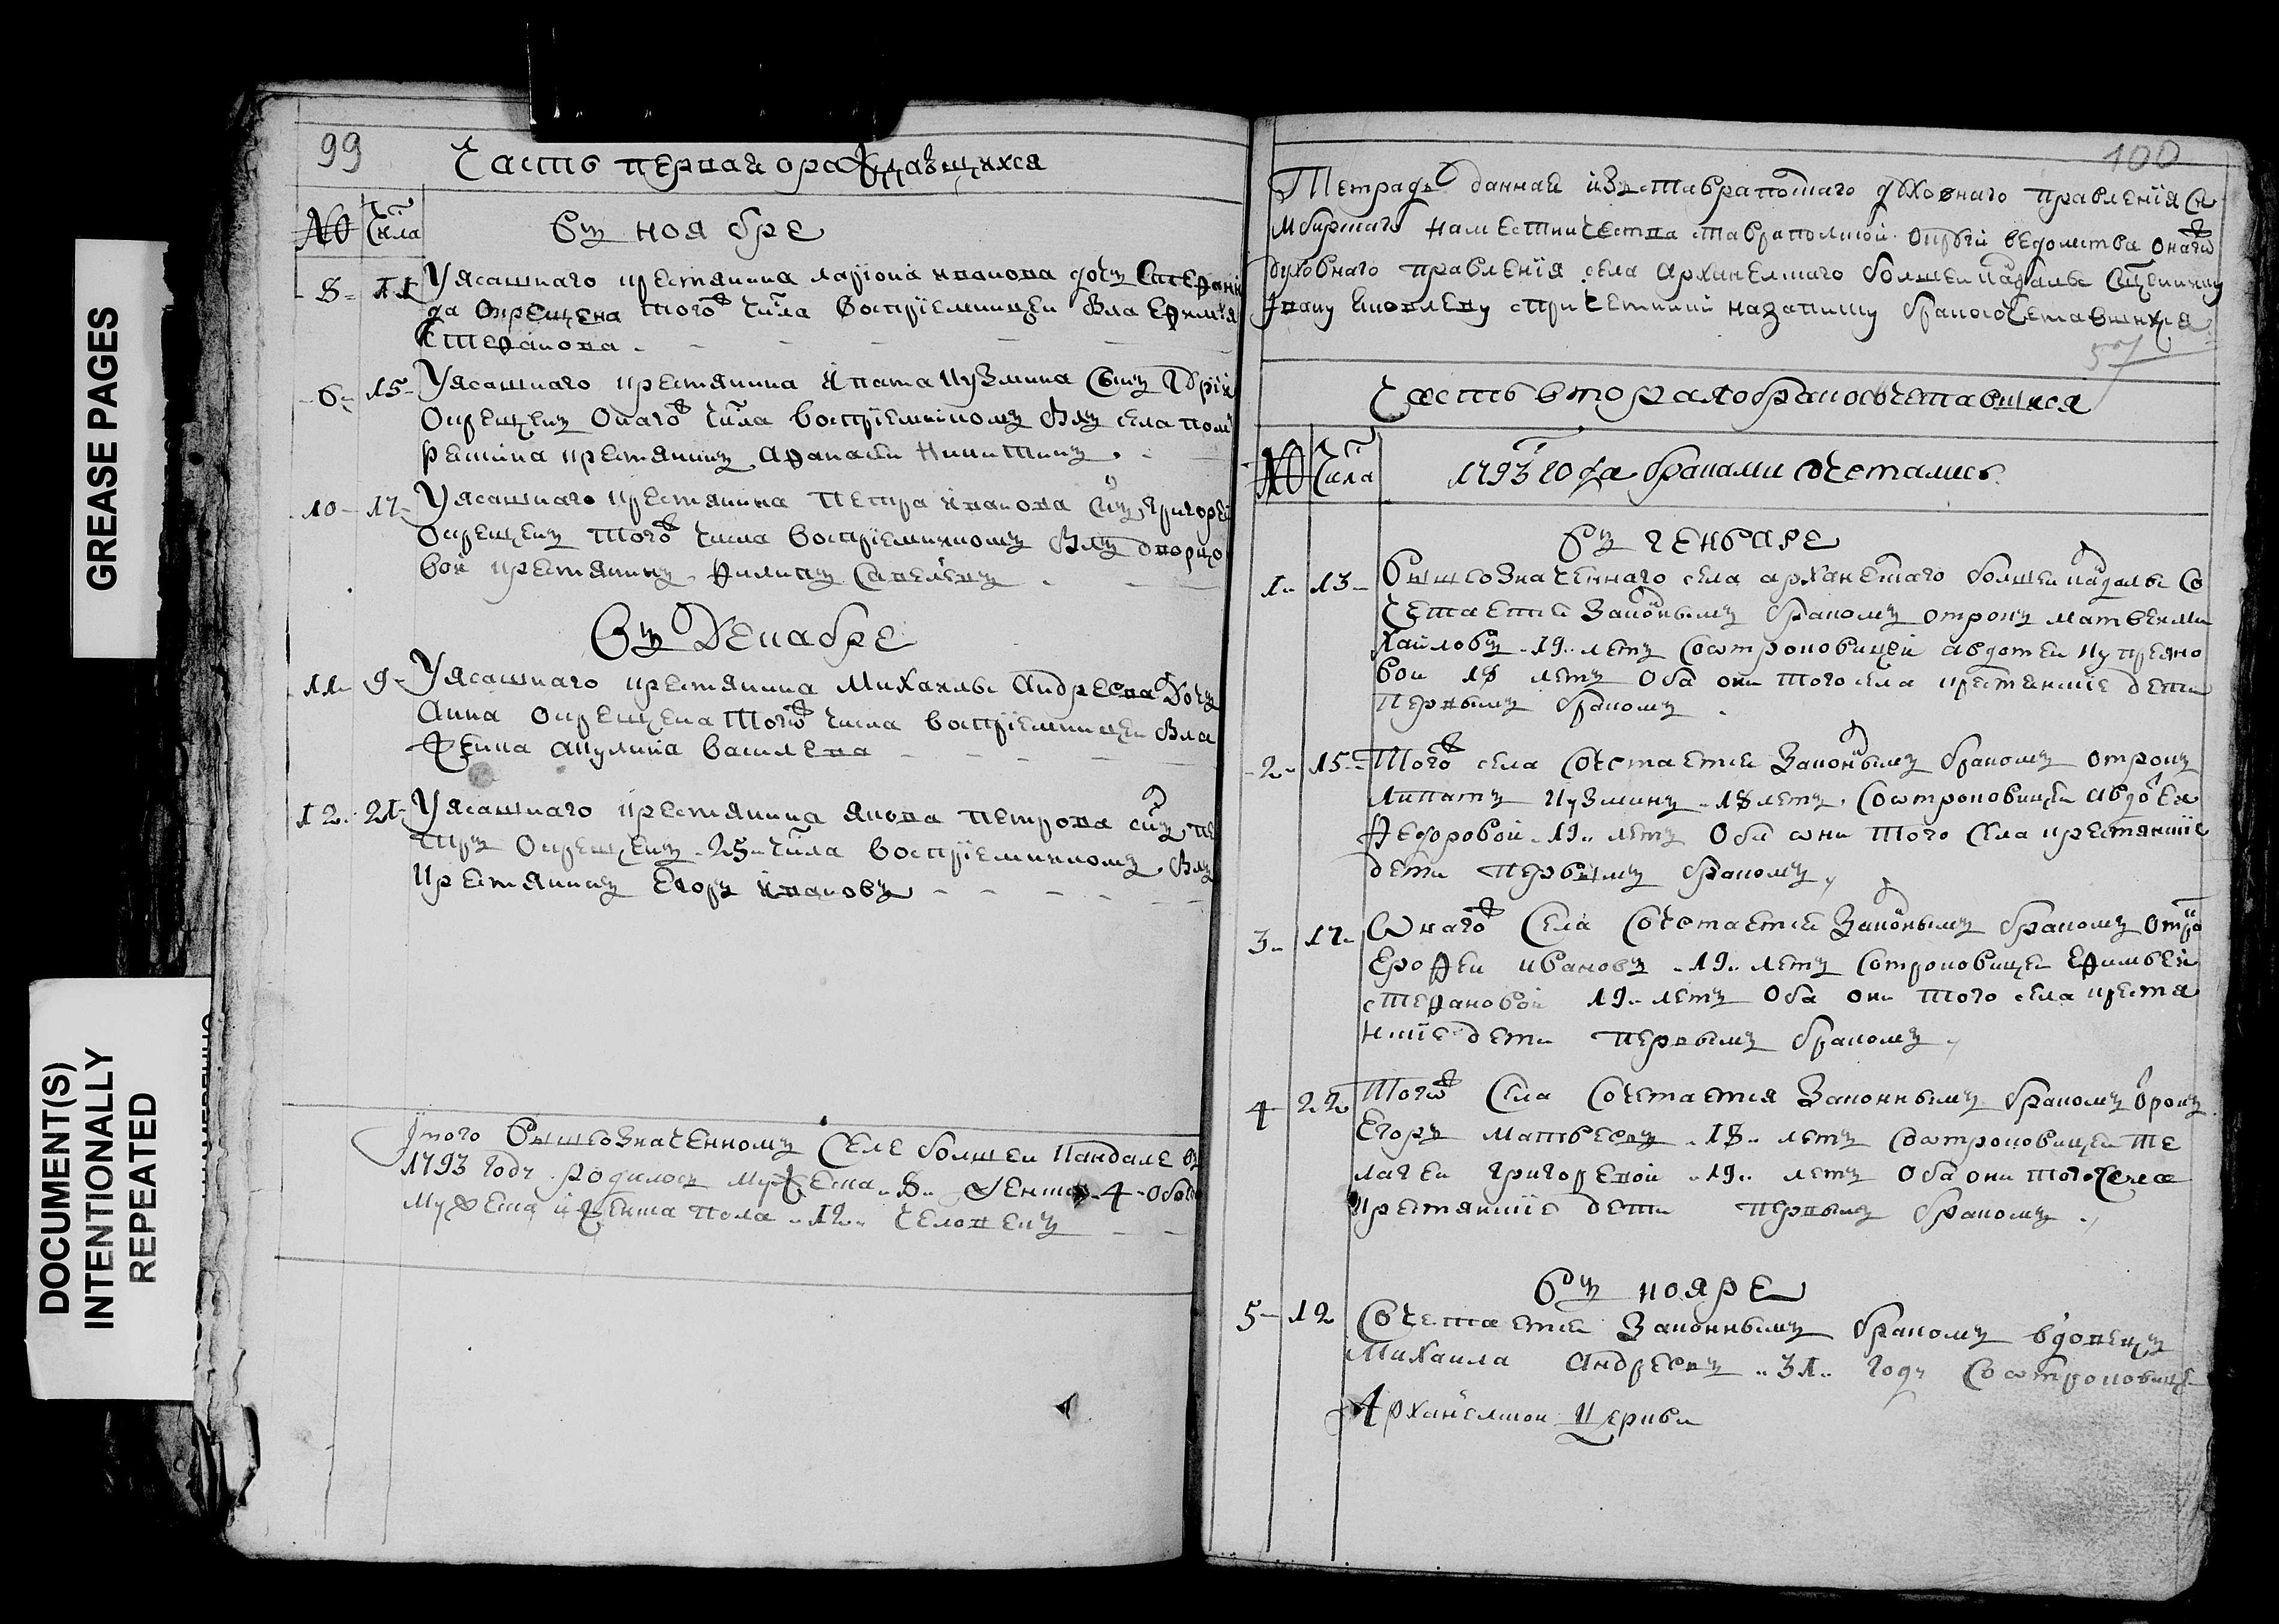 GREASE PAGES
DOCUMENT(S)
INTENTIONALLY
REPEATED
99
Часть первая о раждавшихся
№ Числа
Въ ноябре
8 11 У ясашнаго крестянина Лариона Иванова дочь
да окрещена тогож числа восприемницеи бла Ефимия
Степанова
15 У ясашнаго крестянина Ипата Кузмина сынъ
окрещенъ онагож числа восприемникомъ былъ села
крестянинъ Афанасеи Никитинъ
10 17 У ясашнаго крестянина Петра Иванова снъ Григореи
окрещенъ тогож числа восприемникомъ былъ дворцо
вои крестянинъ Филипъ Савельевъ
Въ Декабре
11 9 У ясашнаго крестянина Михаилы Андреева дочь
Анна окрещена тогож числа восприемницеи бла
Акулина Василева
12 21 У ясашнаго крестянина Якова Петрова снъ Пе
тръ окрещенъ 25 числа восприемникомъ былъ
крестянинъ Егоръ Ивановъ
Итого вышеозначенномъ селе Болшеи Кандале въ
1793 году родилось мужеска 8 женска 4 обоего
мужеска и женска пола 12 человекъ
100
Тетрадь данная изъ Ставрапольскаго духовнаго правления Си
мбирскаго наместничества Ставрапольской округи ведомства онагож
духовнаго правления села Архангелскаго Болшеи Кандалы священнику
Ивану Яковлеву с причетники на записку бракосочетавшихся
57
Часть вторая о бракосочетавшихся
№ Числа 1793 года браками сочетались
Въ генваре
1 13 Вышеозначеннаго села Архангелскаго Болшеи Кандалы со
четается законнымъ бракомъ отрокъ Матвеи Ми
хаиловъ 19 летъ со отроковицеи Авдотеи Куприяно
вои 18 летъ оба они того села крестянские дети
первымъ бракомъ
2 15 Тогож села сочетается законнымъ бракомъ отрокъ
Липатъ Кузминъ 18 летъ со отроковицеи
Федоровои 19 летъ оба они того села крестянские
дети первымъ бракомъ
3 17 Онагож села сочетается законнымъ бракомъ отро
Ерофеи Ивановъ 19 летъ со отроковицеи Ефимьеи
Степановои 19 летъ оба они того села крестя
нские дети первымъ бракомъ
4 22 Тогож села сочетается законнымъ бракомъ отрокъ
Егоръ Матвеевъ 18 летъ со отроковицеи Пе
лагеи Григоревои 19 летъ оба они того села
крестянские дети первымъ бракомъ
Въ нояре
5 12 Сочетается законнымъ бракомъ вдовецъ
Михаила Андреевъ 31 году со отроковицеи
Архангелскои церкви